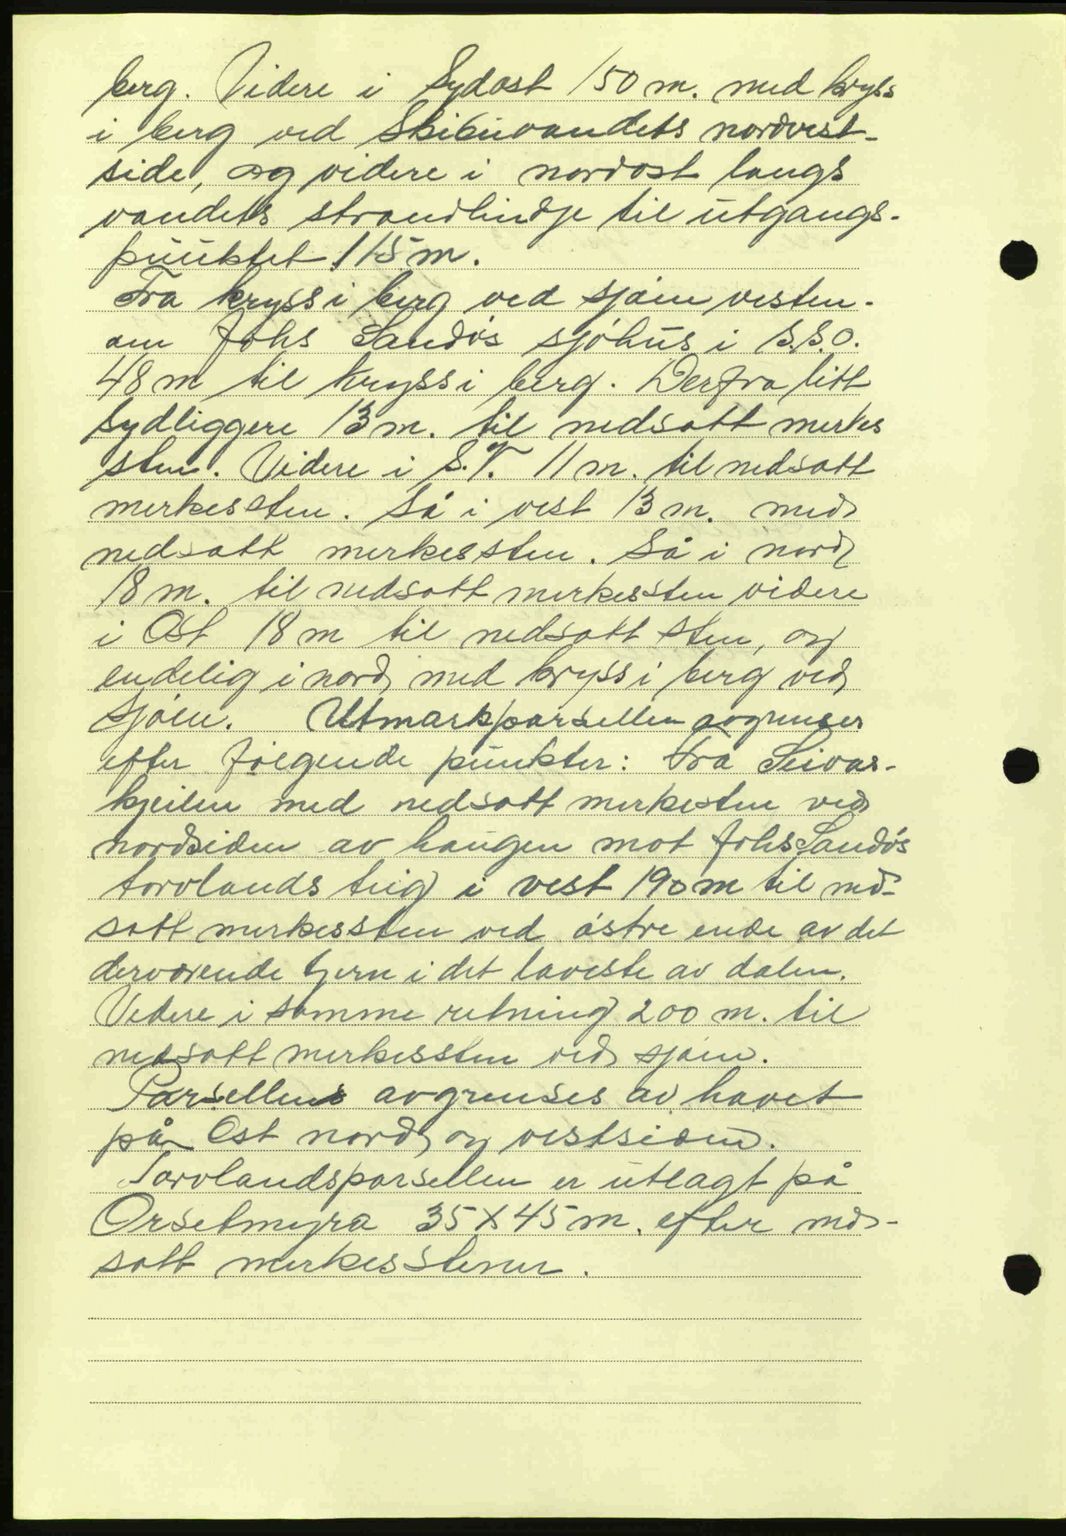 berg. Videre i Sydost 150 m. med kryss
i berg ved Skibuvandets nordvest-
side, og videre i nordost langs
vandets strandlindje til utgangs-
punktet 115 m.
Fra kryss i berg ved sjøen vesten-
om Johs Sandøs sjøhus i S.S.O.
48 m til kryss i berg. Derfra litt
sydliggere 13 m. til nedsatt merkes
sten. Videre i S.V. 11 m. til nedsatt
merkessten. Så i vest 13 m. med
nedsatt merkessten. Så i nord
18 m. til nedsatt merkessten videre
i Ost 18 m til nedsatt sten, og
endelig i nord med kryss i berg ved
sjøen. Utmarkparsellen avgrenses
efter følgende punkter: Fra
kjeilen med nedsatt merkesten ved
nordsiden av haugen mot Johs Sandøs
torvlands teig i vest 190 m til ned-
satt merkessten ved østre ende av det
derværende tjern i det laveste av dalen.
Videre i samme retning 200 m. til
nedsatt merkessten ved sjøen.
Parsellens avgrenses av havet
på Ost nord og vestsiden.
Torvlandsparsellen er utlagt på
Orsetmyra 35 X 45 m. efter ned-
satt merkesstener.